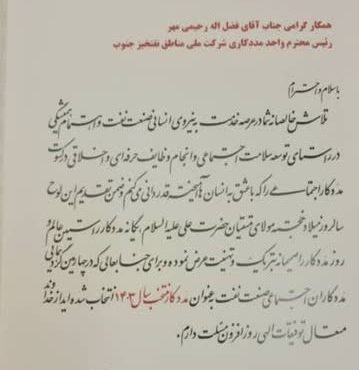 همکار گرامی جناب آقای فضل اله رحیمی مهر
رئیس محترم واحد مددکاری شرکت ملی مناطق نفتخیز جنوب
باسلام و احترام
تلاش خالصانه شما در عرصه خدمت به نیروی انسانی صنعت نفت و اهتمام همیشگی
در راستای توسعه سلامت اجتماعی و انجام وظایف حرفه‌ای و اخلاقی در کسوت
مددکار اجتماعی را که با عشق به انسان‌ها آمیخته، قدردانی می‌کنم و ضمن تقدیم این لوح
سالروز میلاد خجسته مولای متقیان حضرت علی علیه السلام، یگانه مددکار راستین عالم و
روز مددکار را صمیمانه تبریک و تهنیت عرض نموده و برای جنابعالی که در چهارمین گردهمایی
مددکاران اجتماعی صنعت نفت بعنوان مددکار منتخب سال ۱۴۰۳ انتخاب شده اید از خداوند
متعال توفیقات الهی روز افزون مسئلت دارم.